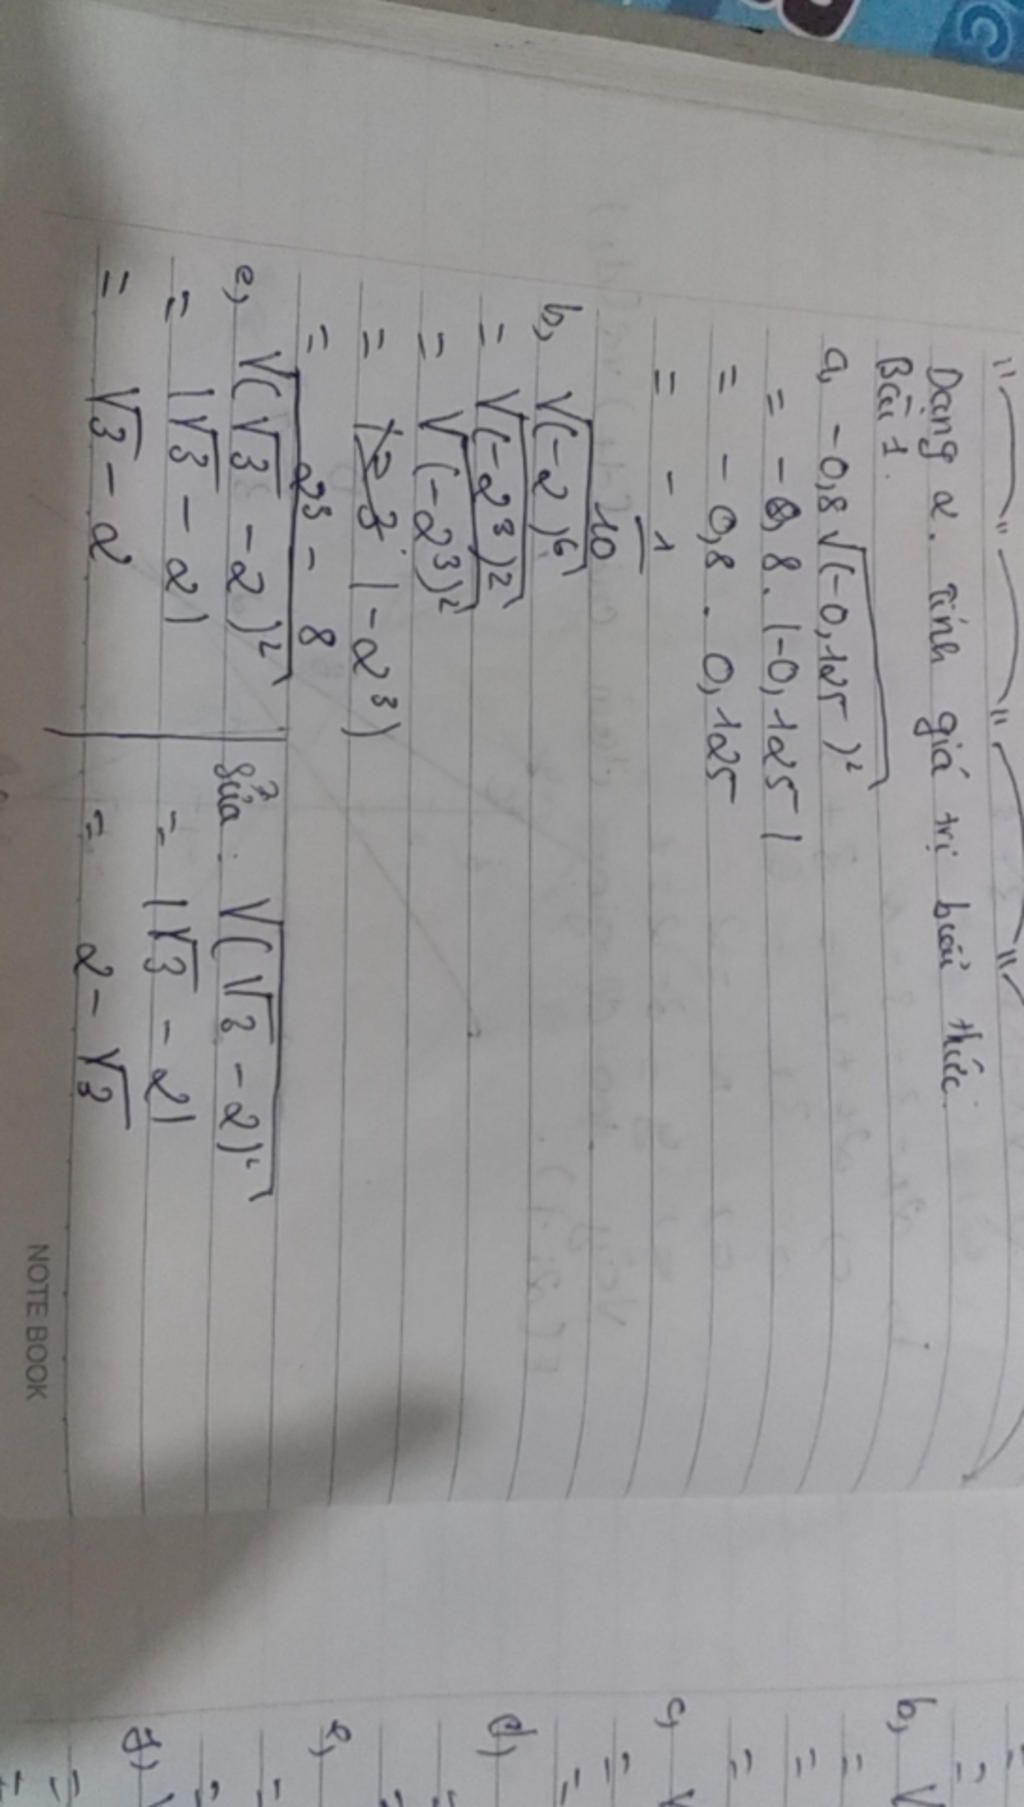 Dạng 2. Tính giá trị biểu thức.
Bài 1.
a, -0,8√(-0,125)²
= -0,8.|-0,125|
= -0,8 . 0,125
= -1/10
b, √(-2)⁶
= √(-2³)²
= √(-2³)²
= |-2³|
= 2³ = 8
e, √(√3 - 2)²
= |√3 - 2|
= √3 - 2
Sửa: √(√3 - 2)²
= |√3 - 2|
= 2 - √3
NOTE BOOK
b,
=
=
=
c,
=
=
d,
=
e,
=
f,
=